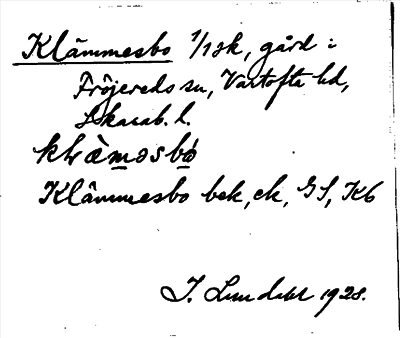 Klämmesbo 1/1 sk, gård i
Fröjereds sn, Vartofta hd,
Skarab. l.
klæ̀məsbo
Klämmesbo bek, ek, GS, Kb
J. Lundahl 1928.